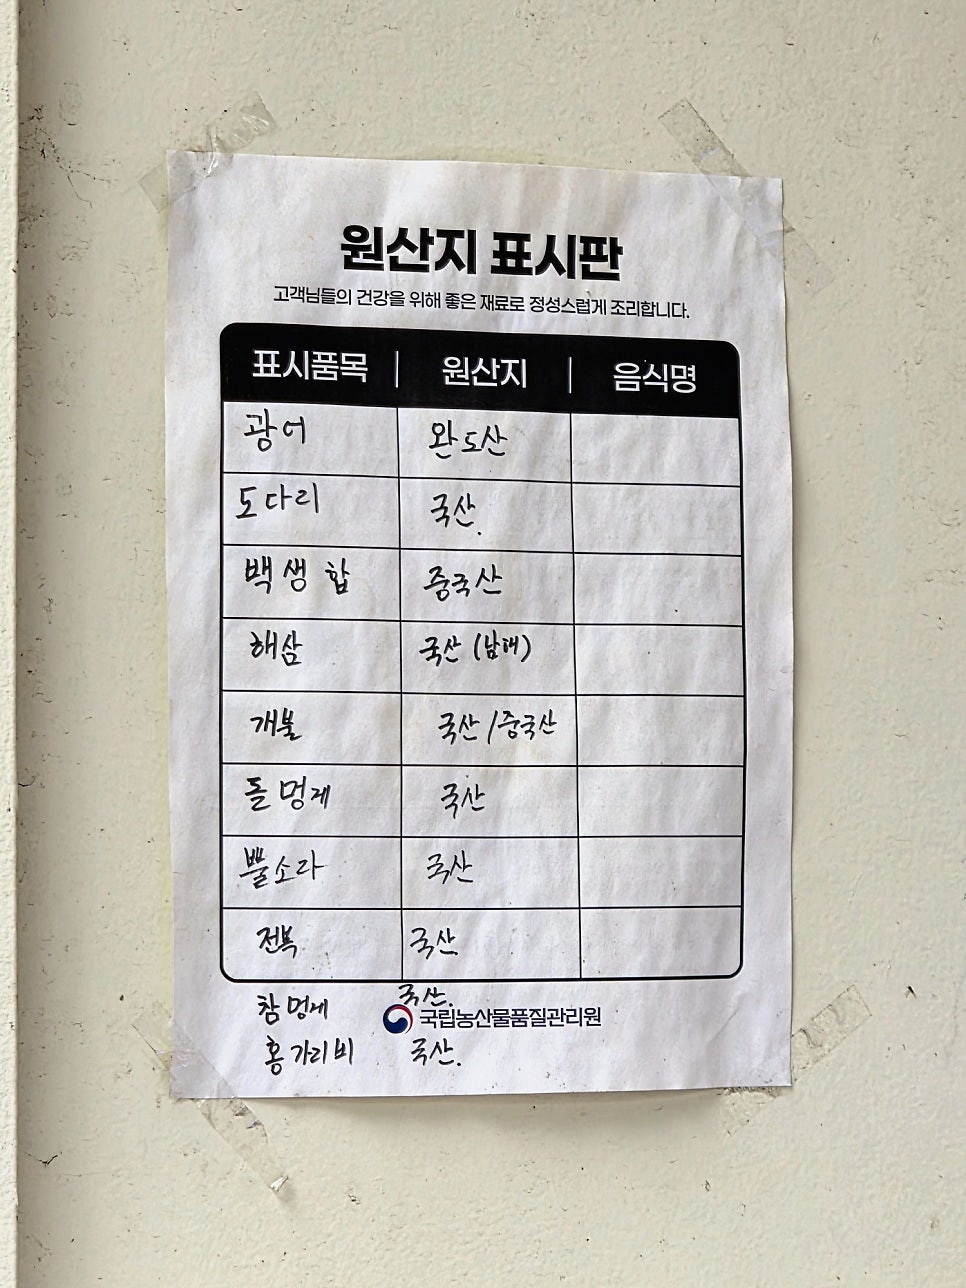 원산지 표시판
고객님들의 건강을 위해 좋은 재료로 정성스럽게 조리합니다.
표시품목 | 원산지 | 음식명
광어 완도산
도다리 국산.
백생합 중국산
해삼 국산 (남해)
개불 국산/중국산
돌멍게 국산
뿔소라 국산
전복 국산
참멍게 국산.
국립농산물품질관리원
홍가리비 국산.